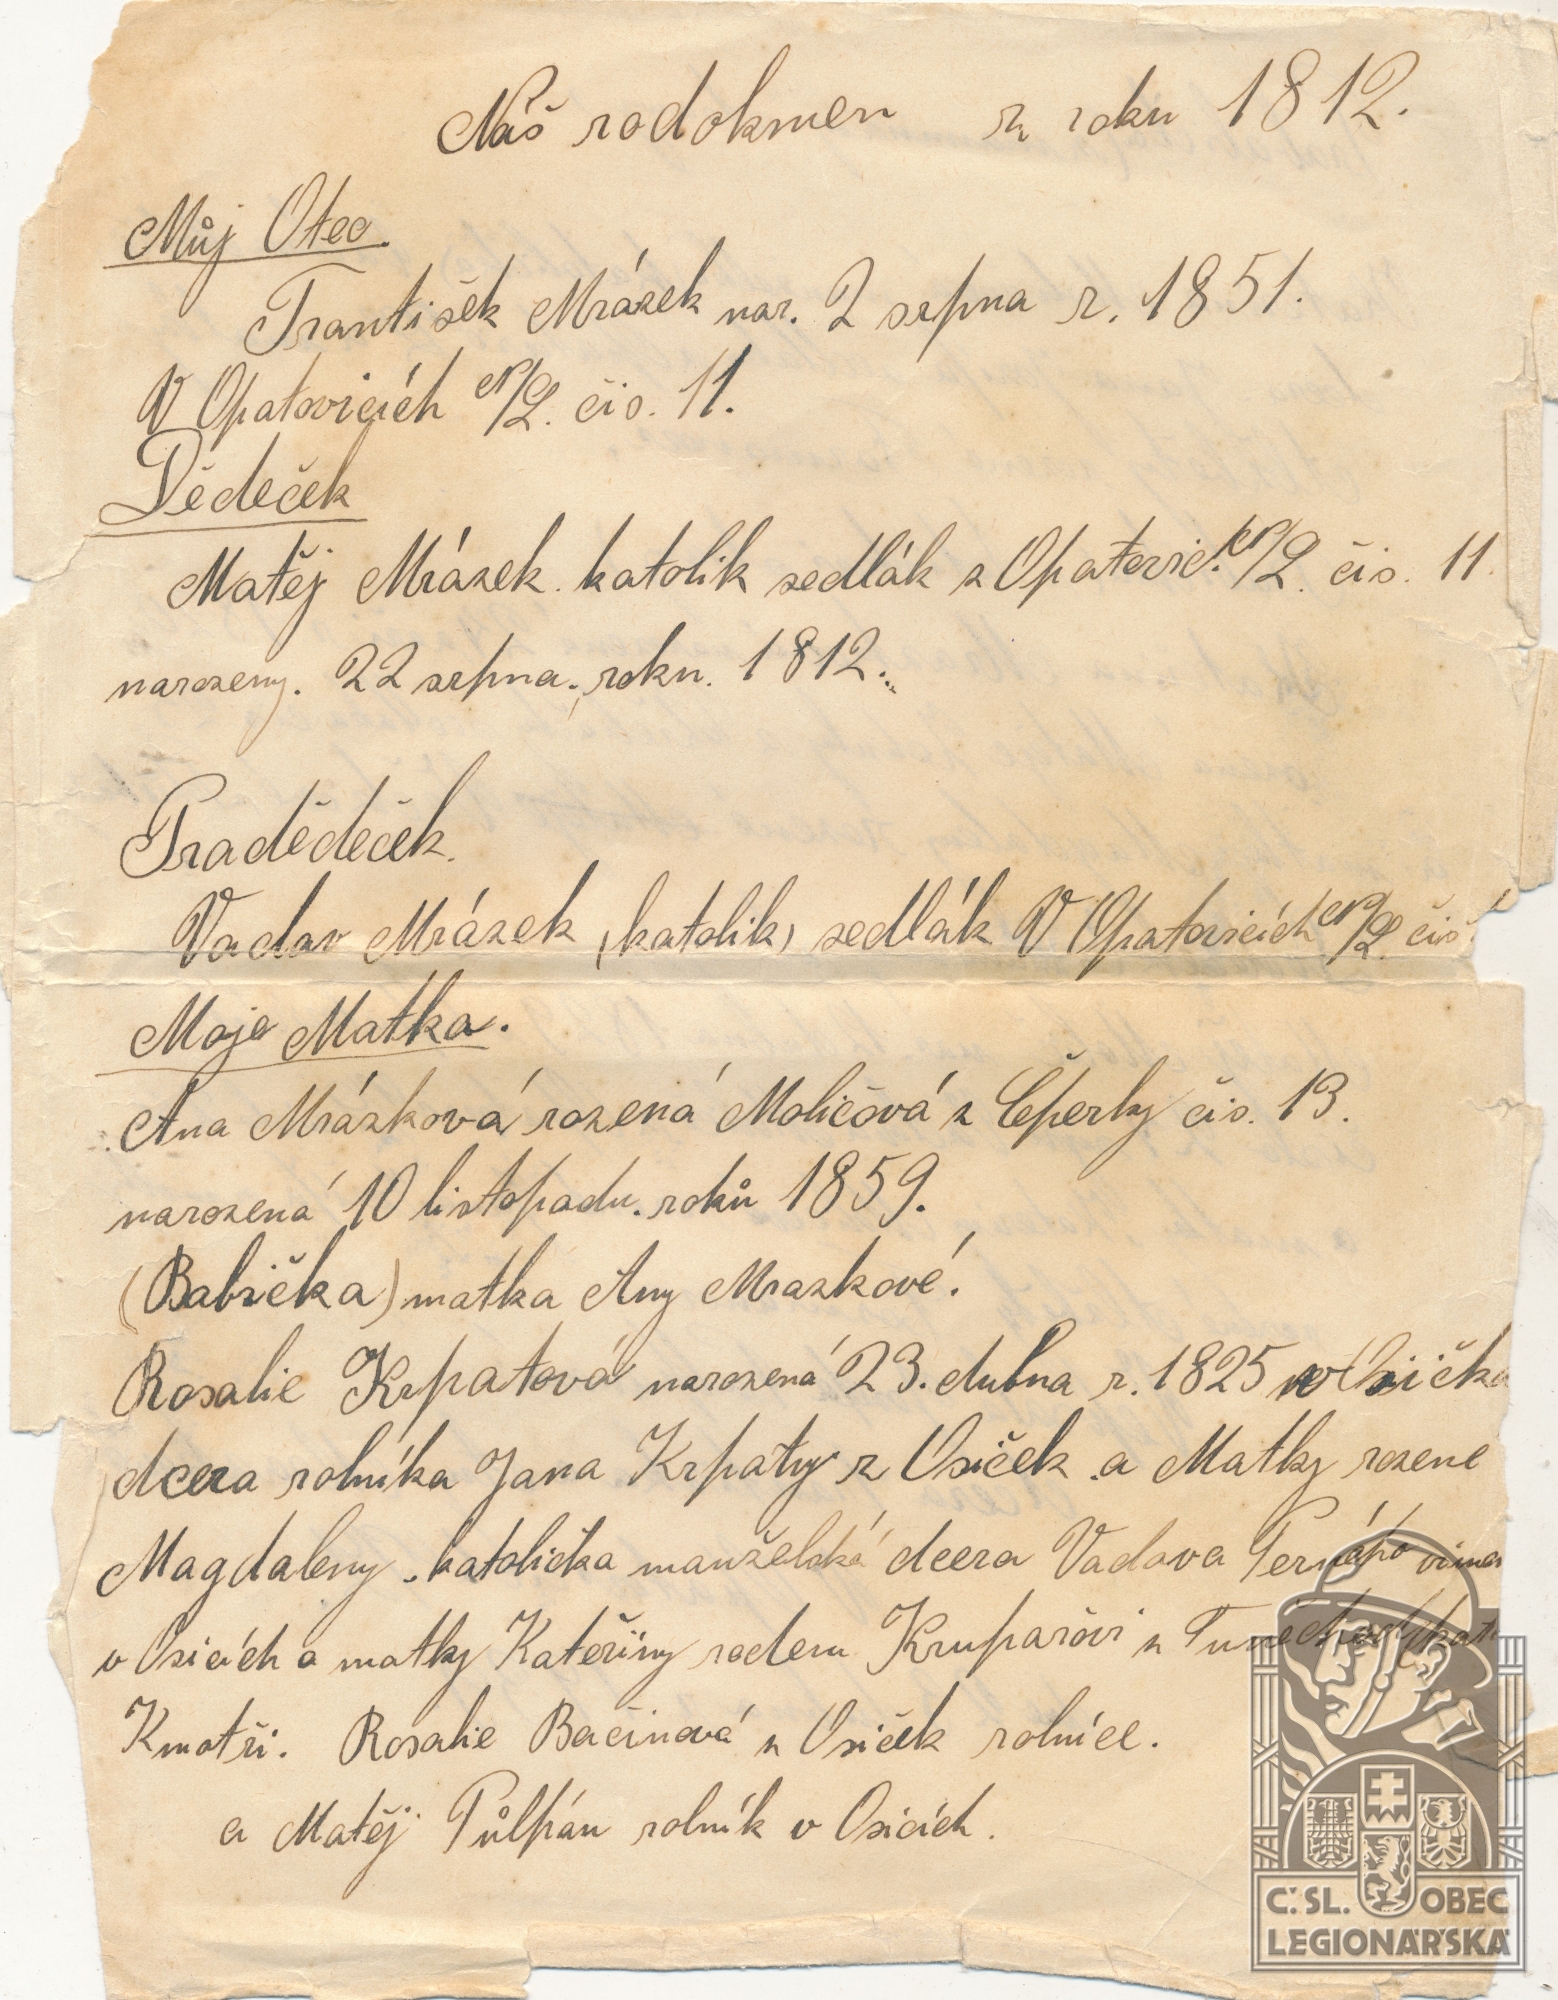 Náš rodokmen z roku 1812.
Můj Otec.
František Mrázek nar. 2 srpna r. 1851.
V Opatovicích n/L. čis. 11.
Dědeček
Matěj Mrázek katolík sedlák z Opatovic n/L. čis. 11.
narozeny. 22 srpna, roku. 1812.
Pradědeček.
Vaclav Mrázek (katolik) sedlák V Opatovicích n/L. čis.
Moje Matka.
Ana Mrázková rozená Moličová z Čeperky čis. 13.
narozená 10 listopadu. roků 1859.
(Babička) matka Any Mrazkové.
Rosalie Krpatová narozená 23. dubna r. 1825 v Osička
dcera rolníka Jana Krpaty z Osiček a Matky rozené
Magdaleny katolička manželská dcera Vaclava
v Osicích a matky Kateřiny rodem z
Kmotři. Rosalie Bačinová z Osiček rolnice.
a Matěj Půlpán rolník v Osicích.
Č. SL. OBEC
LEGIONÁŘSKÁ